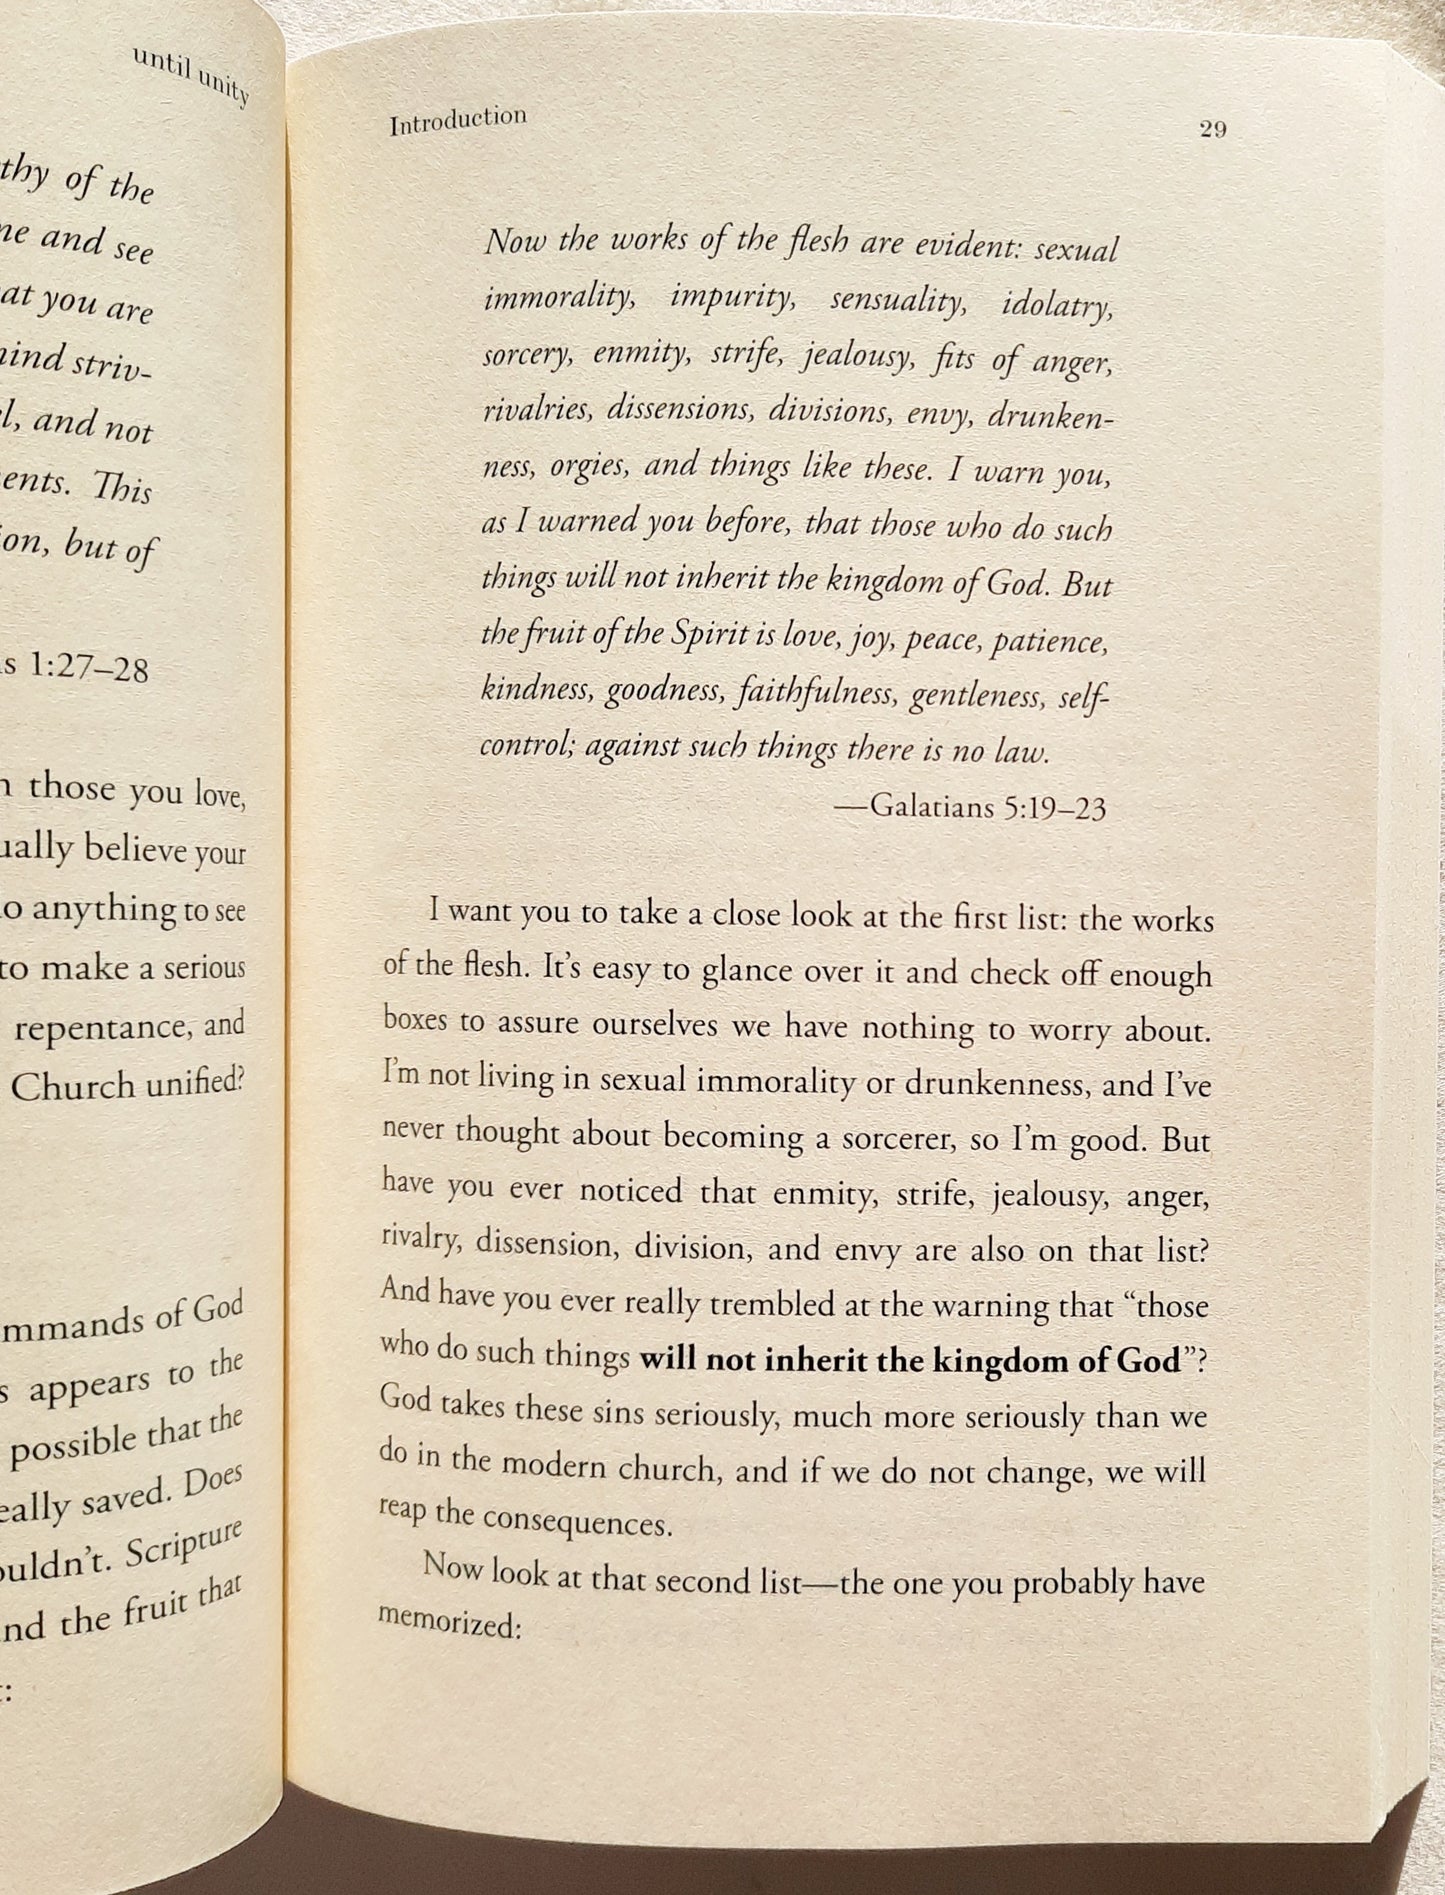 until unity
of the
and see
at you are
striv-
and not
This
but of
1:27–28
those you love,
believe your
anything to see
to make a serious
repentance, and
Church unified?
of God
appears to the
possible that the
saved. Does
Scripture
the fruit that
Introduction
29
Now the works of the flesh are evident: sexual
immorality, impurity, sensuality, idolatry,
sorcery, enmity, strife, jealousy, fits of anger,
rivalries, dissensions, divisions, envy, drunken-
ness, orgies, and things like these. I warn you,
as I warned you before, that those who do such
things will not inherit the kingdom of God. But
the fruit of the Spirit is love, joy, peace, patience,
kindness, goodness, faithfulness, gentleness, self-
control; against such things there is no law.
—Galatians 5:19–23
I want you to take a close look at the first list: the works
of the flesh. It’s easy to glance over it and check off enough
boxes to assure ourselves we have nothing to worry about.
I’m not living in sexual immorality or drunkenness, and I’ve
never thought about becoming a sorcerer, so I’m good. But
have you ever noticed that enmity, strife, jealousy, anger,
rivalry, dissension, division, and envy are also on that list?
And have you ever really trembled at the warning that “those
who do such things will not inherit the kingdom of God”?
God takes these sins seriously, much more seriously than we
do in the modern church, and if we do not change, we will
reap the consequences.
Now look at that second list—the one you probably have
memorized: